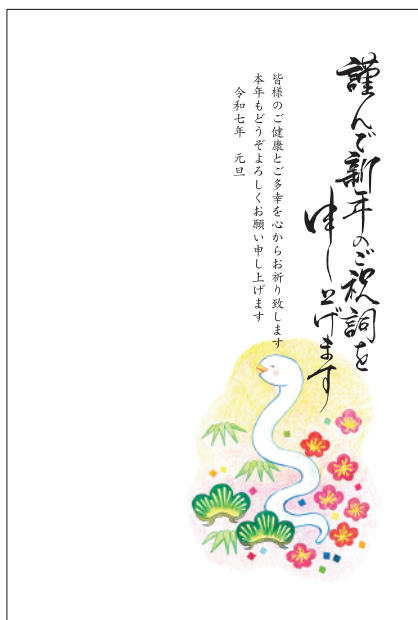 謹んで新年のご祝詞を
申し上げます
皆様のご健康とご多幸を心からお祈り致します
本年もどうぞよろしくお願い申し上げます
令和七年　元旦